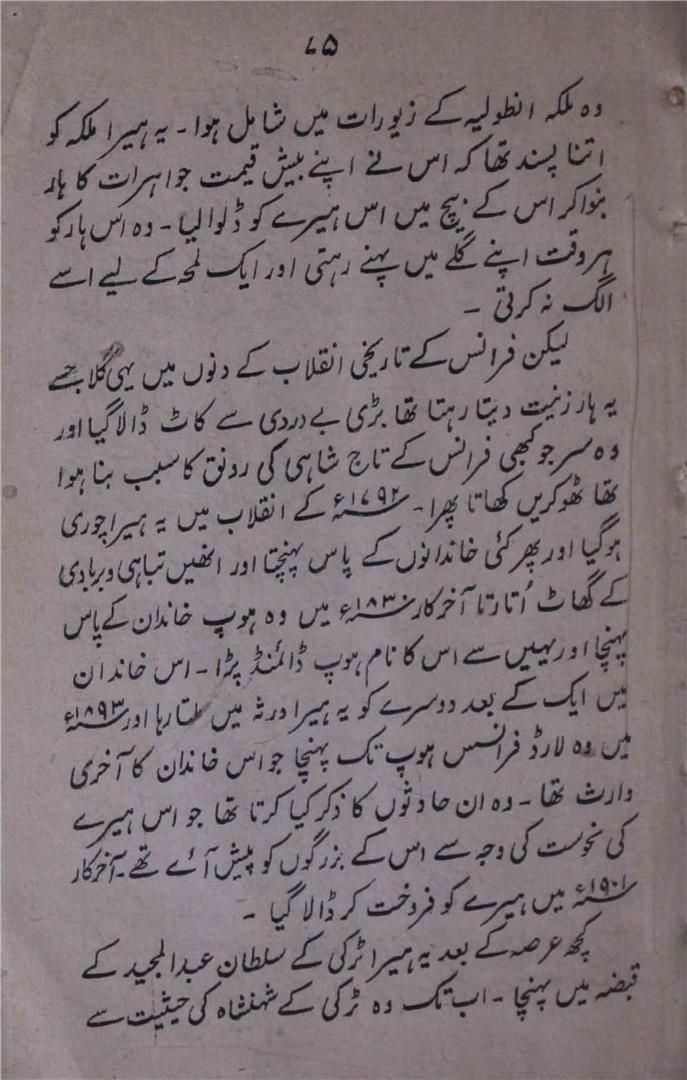 ۷۵
وہ ملکہ انطولیہ کے زیورات میں شامل ہوا۔ یہ ہیرا ملکہ کو
اتنا پسند تھا کہ اس نے اپنے بیش قیمت جواہرات کا ہار
بنوا کر اس کے بیچ میں اس ہیرے کو ڈلوا لیا۔ وہ اس ہار کو
ہر وقت اپنے گلے میں پہنے رہتی اور ایک لمحہ کے لیے اسے
الگ نہ کرتی ۔
لیکن فرانس کے تاریخی انقلاب کے دنوں میں یہی گلا جسے
یہ ہار زینت دیتا رہتا تھا بڑی بے دردی سے کاٹ ڈالا گیا اور
وہ سر جو کبھی فرانس کے تاج شاہی کی رونق کا سبب بنا ہوا
تھا ٹھوکریں کھاتا پھرا۔ ۱۷۹۲ء کے انقلاب میں یہ ہیرا چوری
ہوگیا اور پھر کئی خاندانوں کے پاس پہنچتا اور انھیں تباہی و بربادی
کے گھاٹ اُتارتا آخر کار ۱۸۳۰ء میں وہ ہوپ خاندان کے پاس
پہنچا اور یہیں سے اس کا نام ہوپ ڈائمنڈ پڑا۔ اس خاندان
میں ایک کے بعد دوسرے کو یہ ہیرا ورثہ میں ملتا رہا اور ۱۸۹۳ء
میں وہ لارڈ فرانسس ہوپ تک پہنچا جو اس خاندان کا آخری
وارث تھا ۔ وہ ان حادثوں کا ذکر کیا کرتا تھا جو اس ہیرے
کی نحوست کی وجہ سے اس کے بزرگوں کو پیش آئے تھے۔ آخر کار
۱۹۰۱ء میں ہیرے کو فروخت کر ڈالا گیا ۔
کچھ عرصہ کے بعد یہ ہیرا ٹرکی کے سلطان عبدالمجید کے
قبضہ میں پہنچا ۔ اب تک وہ ٹرکی کے شہنشاہ کی حیثیت سے